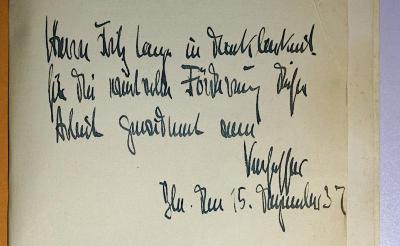 Herrn Fritz Lange in Dankbarkeit
für die wertvolle Förderung dieser
Arbeit gewidmet vom
Verfasser
Bln. den 15. Dezember 37